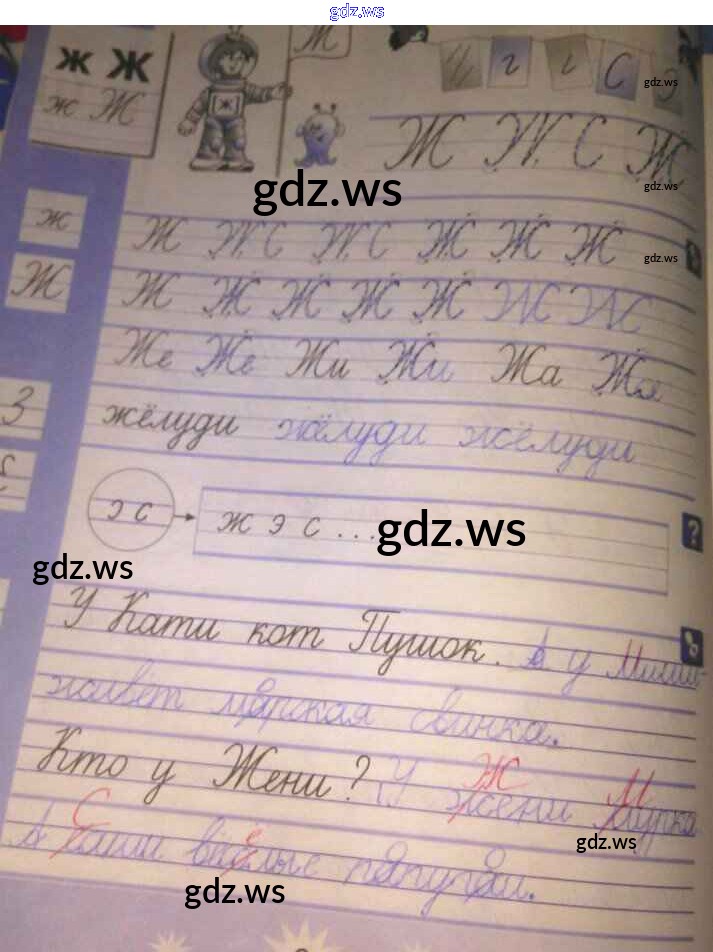 gdz.ws
ж Ж Ж
ж Ж
г г С Э gdz.ws
Ж Ж С Ж
gdz.ws gdz.ws
ж Ж Ж С Ж С Ж Ж Ж gdz.ws
Ж Ж Ж Ж Ж Ж Ж Ж
Же Же Жи Жи Жа Жа
З жёлуди жёлуди жёлуди
э с ж э с ... gdz.ws ?
gdz.ws
У Кати кот Пушок. А у Миши
живёт морская свинка.
Кто у Жени? У Жжени Ммурка
gdz.ws
А Ссаши весёлые попугаи.
gdz.ws